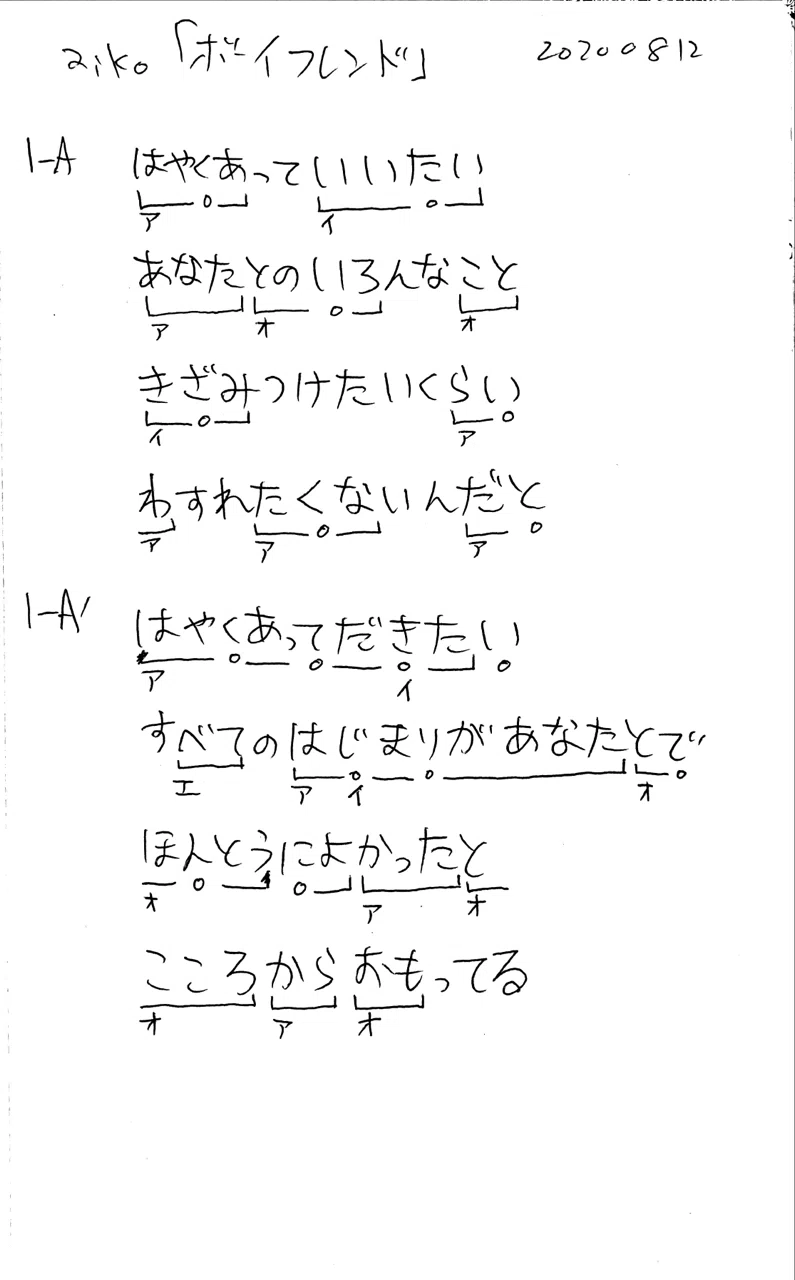 aiko「ボーイフレンド」 20200812
1-A はやくあっていいたい
ア イ
あなたとのいろんなこと
ア オ オ
きざみつけたいくらい
イ ア
わすれたくないんだと
ア ア ア
1-A' はやくあってだきたい
ア イ
すべてのはじまりがあなたとで
エ ア イ オ
ほんとうによかったと
オ ア オ
こころからおもってる
オ ア オ